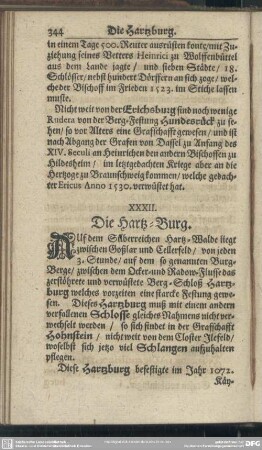 344 Die Hartzburg.
in einem Tage 500. Reuter ausrüsten konte, mit Zu-
ziehung seines Vetters Heinrici zu Wolffenbüttel
aus dem Lande jagte / und sieben Städte / 18.
Schlösser / nebst hundert Dörffern an sich zoge / wel-
che der Bischoff im Frieden 1523. im Stiche lassen
muste.
Nicht weit von der Erichsburg sind noch wenige
Rudera von der Berg-Festung Hundesrück zu se-
hen / so vor Alters eine Graffschafft gewesen / und ist
nach Abgang der Grafen von Dassel zu Anfang des
XIV. Seculi an Heinrichen den andern Bischoffen zu
Hildesheim / im letztgedachten Kriege aber an die
Hertzoge zu Braunschweig kommen / welche gedach-
ter Ericus Anno 1530. verwüstet hat.
XXXII.
Die Hartz-Burg.
AUf dem Silberreichen Hartz-Walde liegt
zwischen Goßlar und Cellerfeld / von jeden
3. Stunde / auf dem so genannten Burg-
Berge / zwischen dem Ocker- und Radow-Flusse das
zerstöhrete und verwüstete Berg-Schloß Hartz-
burg welches vorzeiten eine starcke Festung gewe-
sen. Dieses Hartzburg muß mit einem andern
verfallenen Schlosse gleiches Nahmens nicht ver-
wechselt werden / so sich findet in der Grafschafft
Hohnstein / nicht weit von dem Closter Ilefeld /
woselbst sich jetzo viel Schlangen aufzuhalten
pflegen.
Diese Hartzburg befestigte im Jahr 1072.
Käy-